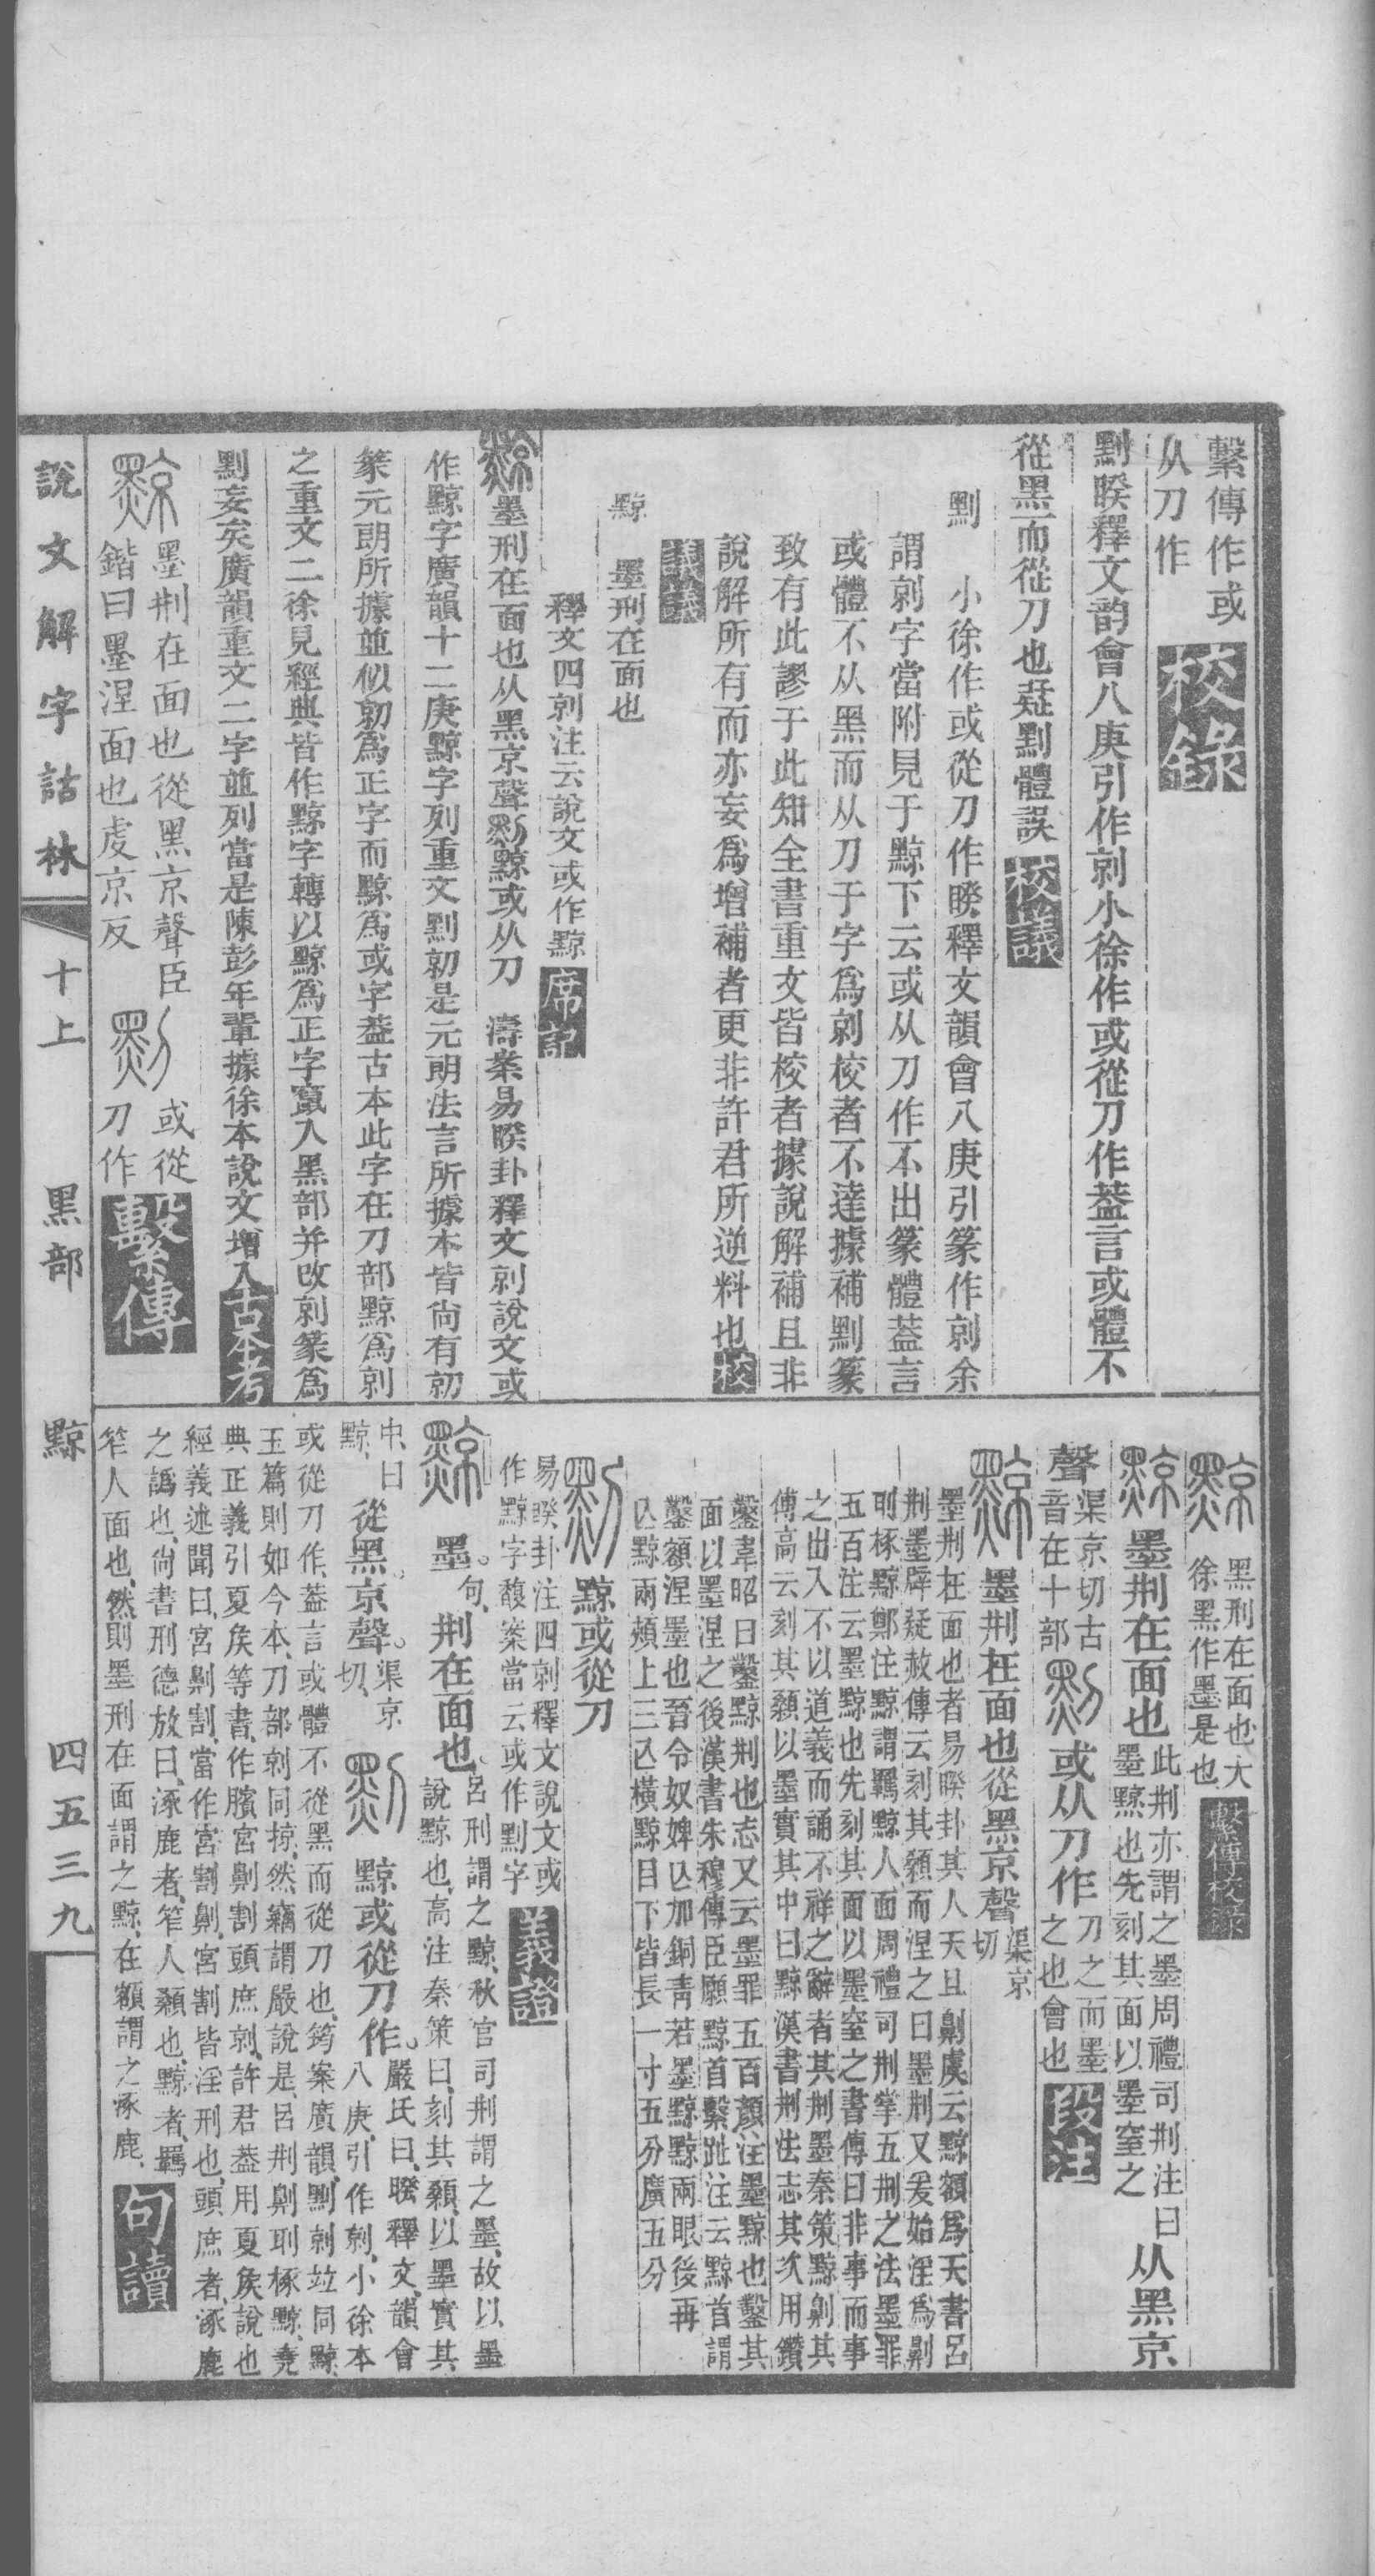 繫傳作或
从刀作
校錄
剠睽釋文韵會八庚引作剠小徐作或從刀作葢言或體不
從黑而從刀也疑剠體誤 校議
剠 小徐作或從刀作睽釋文韻會八庚引篆作剠余
謂剠字當附見于黥下云或从刀作不出篆體葢言
或體不从黑而从刀于字爲剠校者不達據補剠篆
致有此謬于此知全書重文皆校者據說解補且非
說解所有而亦妄爲增補者更非許君所逆料也 校
議議
黥 墨刑在面也
釋文四剠注云說文或作黥 席記
黥墨刑在面也从黑京聲剠黥或从刀 濤案易睽卦釋文剠說文或
作黥字廣韻十二庚黥字列重文剠剠是元朗法言所據本皆尚有剠
篆元朗所據並似剠爲正字而黥爲或字葢古本此字在刀部黥爲剠
之重文二徐見經典皆作黥字轉以黥爲正字竄入黑部并改剠篆爲
剠妄矣廣韻重文二字並列當是陳彭年輩據徐本說文增入 古本考
黥 墨刑在面也從黑京聲臣
鍇曰墨涅面也虔京反
剠 或從
刀作
繫傳
黥 黑刑在面也大
徐黑作墨是也 繫傳校錄
黥墨荆在面也 此荆亦謂之墨周禮司荆注曰
墨黥也先刻其面以墨窒之 从黑京
聲 渠京切古
音在十部 剠或从刀作 刀之而墨
之也會也 段注
黥墨荆在面也從黑京聲 渠京
切
墨荆在面也者易睽卦其人天且劓虞云黥額爲天書呂
荆墨辟疑赦傳云刻其顙而涅之曰墨荆又爰始淫爲劓
刵椓黥鄭注黥謂羈黥人面周禮司荆掌五荆之法墨罪
五百注云墨黥也先刻其面以墨窒之書傳曰非事而事
之出入不以道義而誦不祥之辭者其荆墨秦策黥劓其
傅高云刻其顙以墨實其中曰黥漢書荆法志其次用鑽
鑿韋昭曰鑿黥荆也志又云墨罪五百顏注墨黥也鑿其
面以墨涅之後漢書朱穆傳臣願黥首繫趾注云黥首謂
鑿額涅墨也晉令奴婢亾加銅青若墨黥黥兩眼後再
亾黥兩頰上三亾橫黥目下皆長一寸五分廣五分
剠黥或從刀
易睽卦注四剠釋文說文或
作黥字馥案當云或作剠字 義證
黥 墨。句。荆在面也。 呂刑謂之黥、秋官司荆謂之墨、故以墨
說黥也、高注秦策曰、刻其顙、以墨實其
中、曰
黥、 從黑。京聲。 渠京
切、 剠 黥或從刀作。 嚴氏曰、睽釋文、韻會
八庚、引作剠、小徐本
或從刀作、葢言或體不從黑而從刀也、筠案廣韻、剠剠竝同黥
玉篇則如今本、刀部剠同掠、然竊謂嚴說是、呂荆劓刵椓黥、堯
典正義引夏矦等書、作臏宮劓割頭庶剠、許君葢用夏矦說也
經義述聞曰、宮劓割、當作宮割劓、宮割皆淫刑也、頭庶者、涿鹿
之譌也、尚書刑德放曰、涿鹿者、笮人顙也、黥者、羈
笮人面也、然則墨刑在面謂之黥、在額謂之涿鹿、 句讀
說文解字詁林 十上 黑部 黥 四五三九